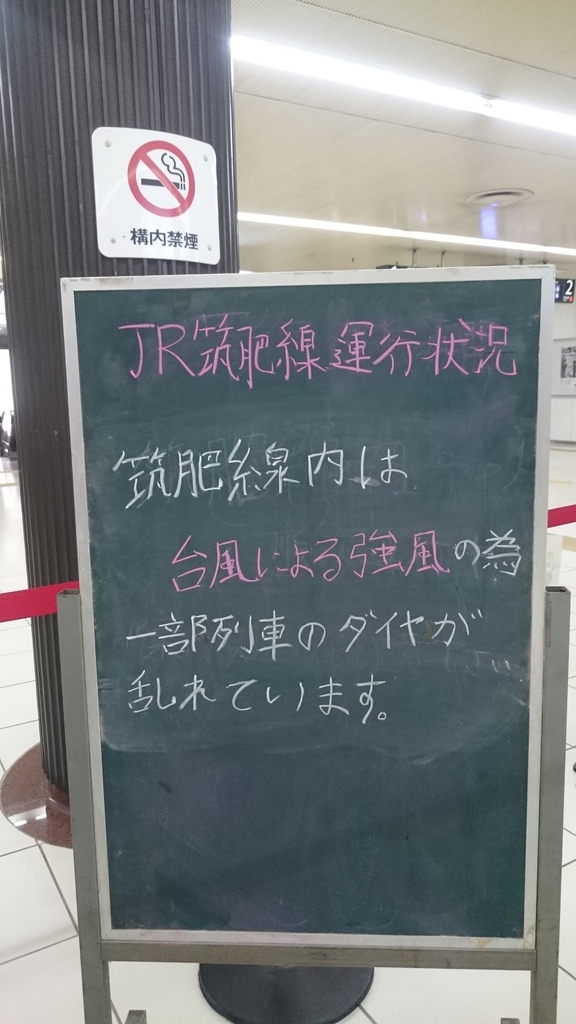 構内禁煙
2
JR筑肥線運行状況
筑肥線内は
台風による強風の為
一部列車のダイヤが
乱れています。